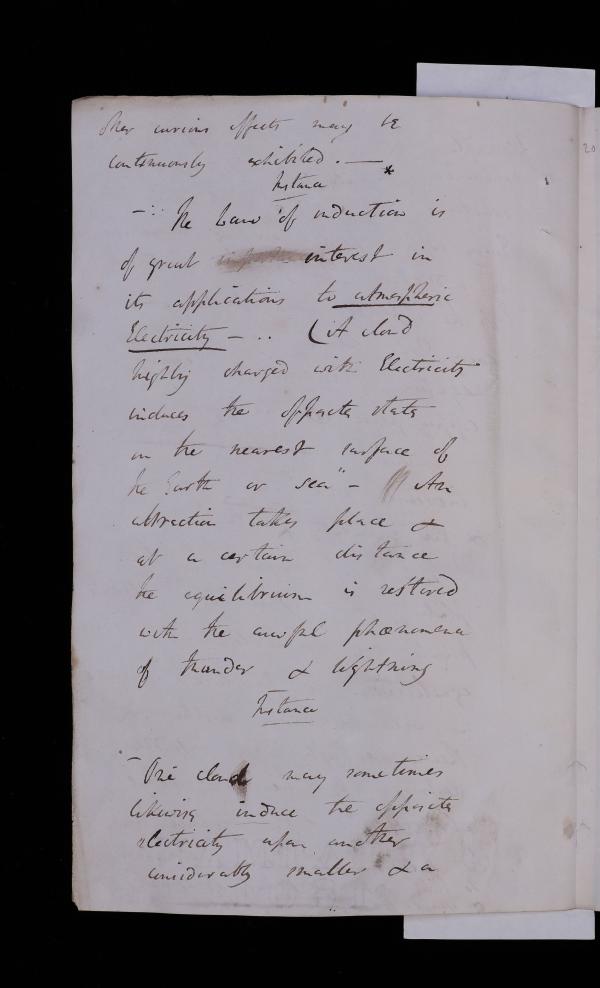 other curious effects may be
continuously exhibited. — *
Instance
— The Law of induction is
of great interest in
its applications to atmospheric
Electricity — .. (A cloud
highly charged with Electricity
induces the opposite state
on the nearest surface of
the Earth or sea" — An
attraction takes place &
at a certain distance
the equilibrium is restored
with the awful phœnomena
of thunder & lightning
Instance
— One cloud may sometimes
likewise induce the opposite
electricity upon another
considerably smaller & a
20